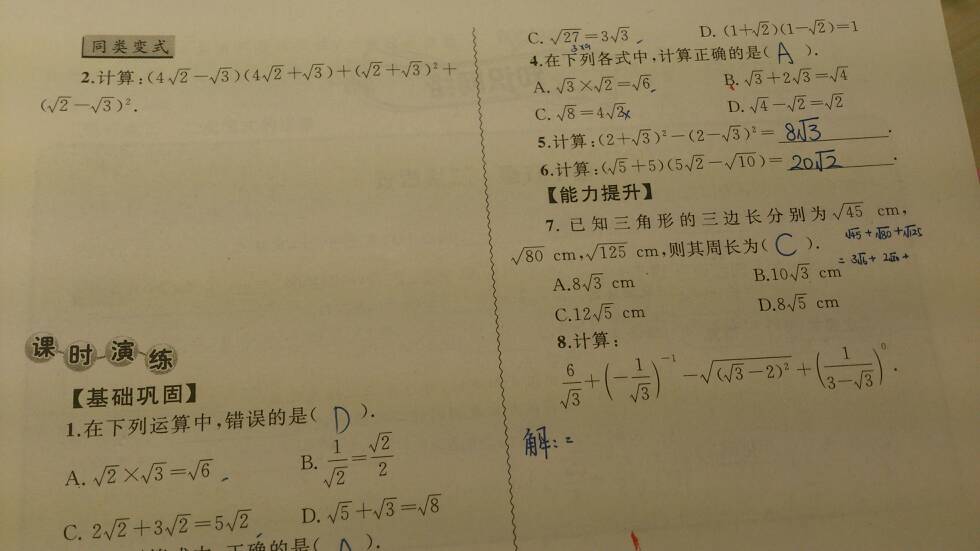 同类变式
2.计算:(4√2−√3)(4√2+√3)+(√2+√3)²+
(√2−√3)².
课时演练
【基础巩固】
1.在下列运算中,错误的是( D ).
A. √2×√3=√6
B. 1/√2=√2/2
C. 2√2+3√2=5√2
D. √5+√3=√8
正确的是( A ).
C. √27=3√3
D. (1+√2)(1−√2)=1
3×9
4.在下列各式中,计算正确的是( A ).
A. √3×√2=√6
B. √3+2√3=√4
C. √8=4√2 x
D. √4−√2=√2
5.计算:(2+√3)²−(2−√3)²= 8√3 .
6.计算:(√5+5)(5√2−√10)= 20√2 .
【能力提升】
7. 已知三角形的三边长分别为√45 cm,
√80 cm,√125 cm,则其周长为( C ).
√45+√80+√125
A.8√3 cm
B.10√3 cm
C.12√5 cm
D.8√5 cm
8.计算:
6/√3+(−1/√3)⁻¹−√((√3−2)²)+(1/(3−√3))⁰.
解:=